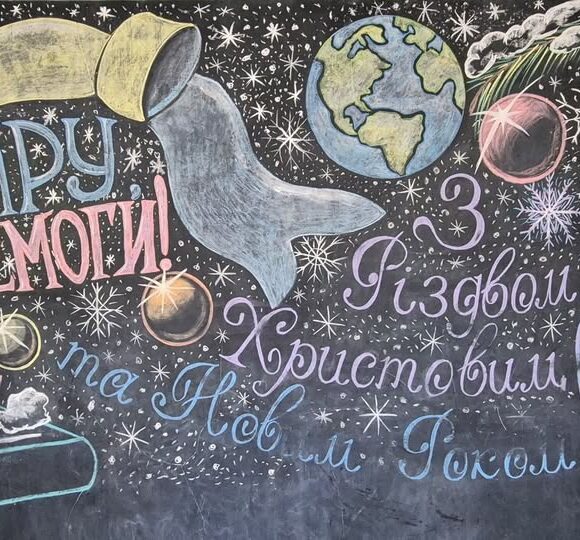 ИРУ,
ЕМОГИ!
З
Різдвом
Христовим
та Новим Роком